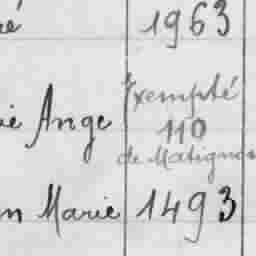 é 1963
ie Ange Exempté
110
de Matignon
n Marie 1493